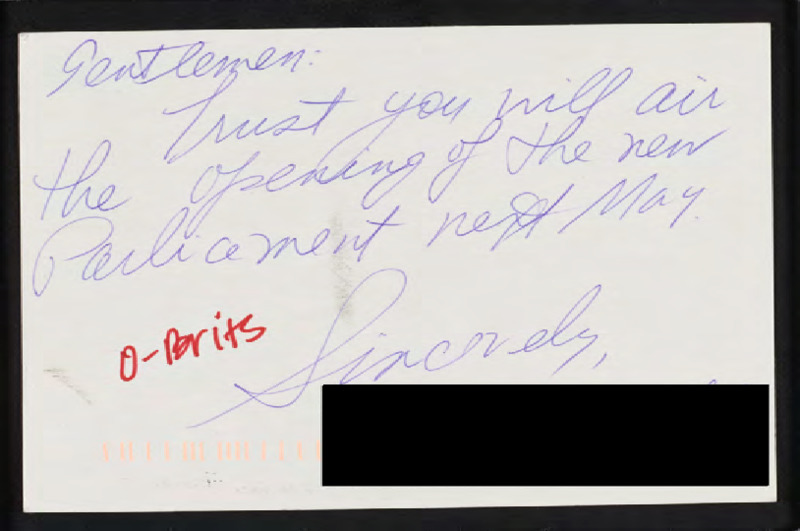 Gentlemen:
Trust you will air
the opening of the new
Parliament next May.
O-Brits
Sincerely,